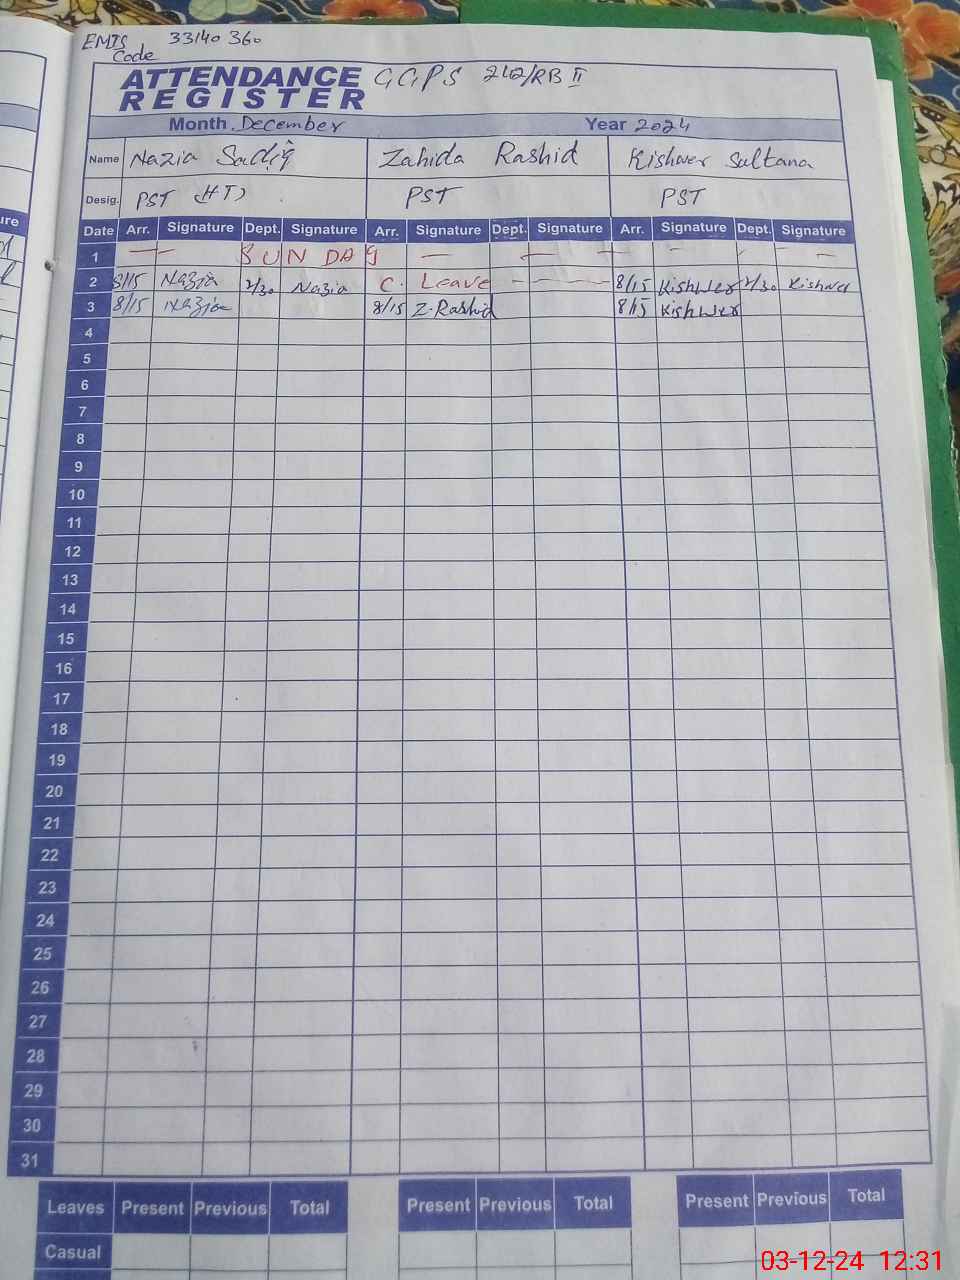 EMIS 33140360
Code
ATTENDANCE GGPS 242/RB II
REGISTER
Month December Year 2024
Name Nazia Sadiq Zahida Rashid Kishwer Sultana
Desig. PST (HT) PST PST
Date Arr. Signature Dept. Signature Arr. Signature Dept. Signature Arr. Signature Dept. Signature
1 SUNDAY
2 8/15 Nazia 2/30 Nazia C. Leave 8/15 Kishwer 2/30 Kishwer
3 8/15 Nazia 8/15 Z.Rashid 8/15 Kishwer
4
5
6
7
8
9
10
11
12
13
14
15
16
17
18
19
20
21
22
23
24
25
26
27
28
29
30
31
Leaves Present Previous Total Present Previous Total Present Previous Total
Casual
03-12-24 12:31